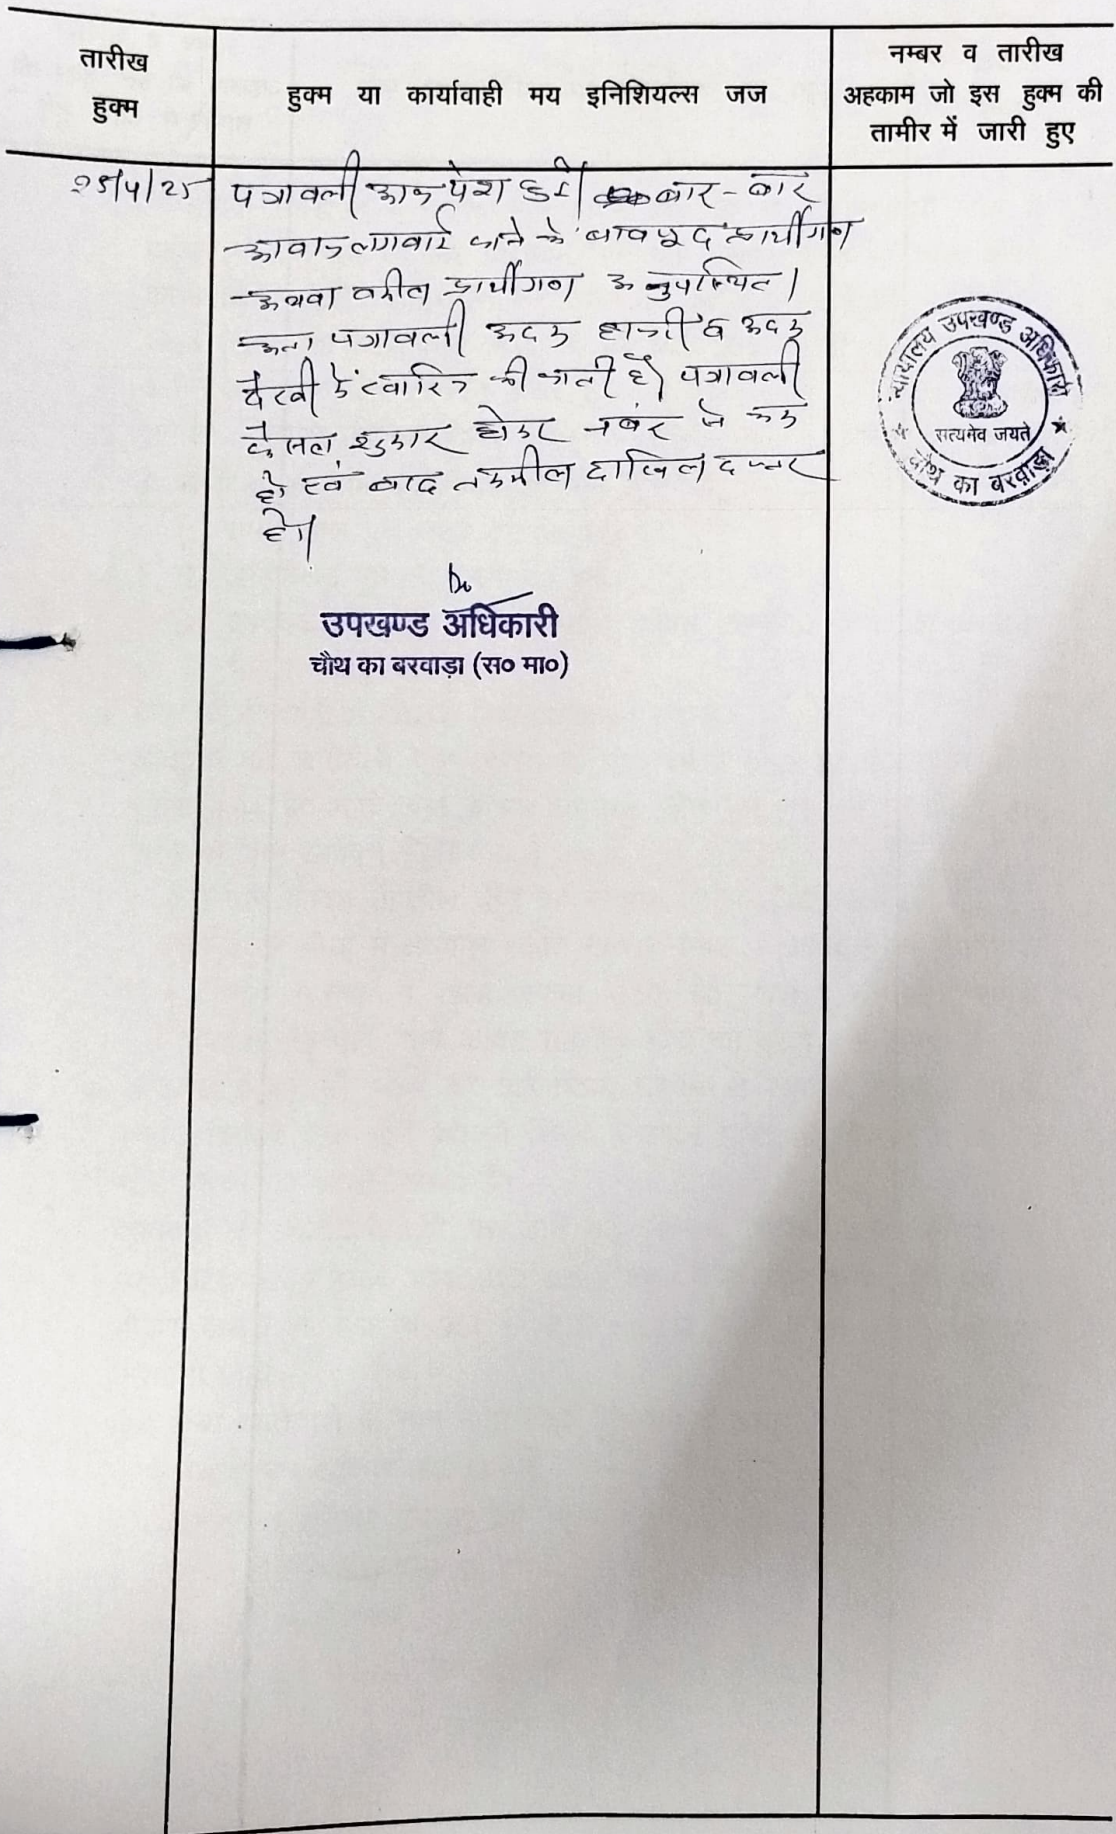 तारीख
हुक्म
हुक्म या कार्यावाही मय इनिशियल्स जज
नम्बर व तारीख
अहकाम जो इस हुक्म की
तामीर में जारी हुए
25/4/25
पत्रावली आज पेश हुई। बार-बार
आवाज लगवाई जाने के बावजूद प्रार्थीगण
अथवा वकील प्रार्थीगण अनुपस्थित।
अतः पत्रावली अदम हाजरी व अदम
पैरवी में खारिज की जाती है। पत्रावली
फैसला शुमार होकर नंबर से कम
हो एवं बाद तकमील दाखिल दफ्तर
हो।
उपखण्ड अधिकारी
चौथ का बरवाड़ा (स० मा०)
न्यायालय उपखण्ड अधिकारी
सत्यमेव जयते
चौथ का बरवाड़ा